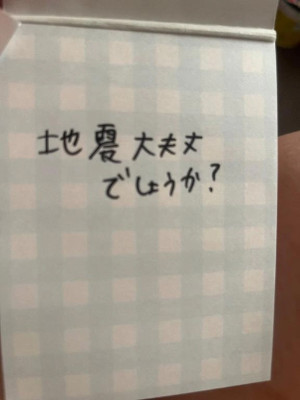 地震大丈夫
でしょうか?